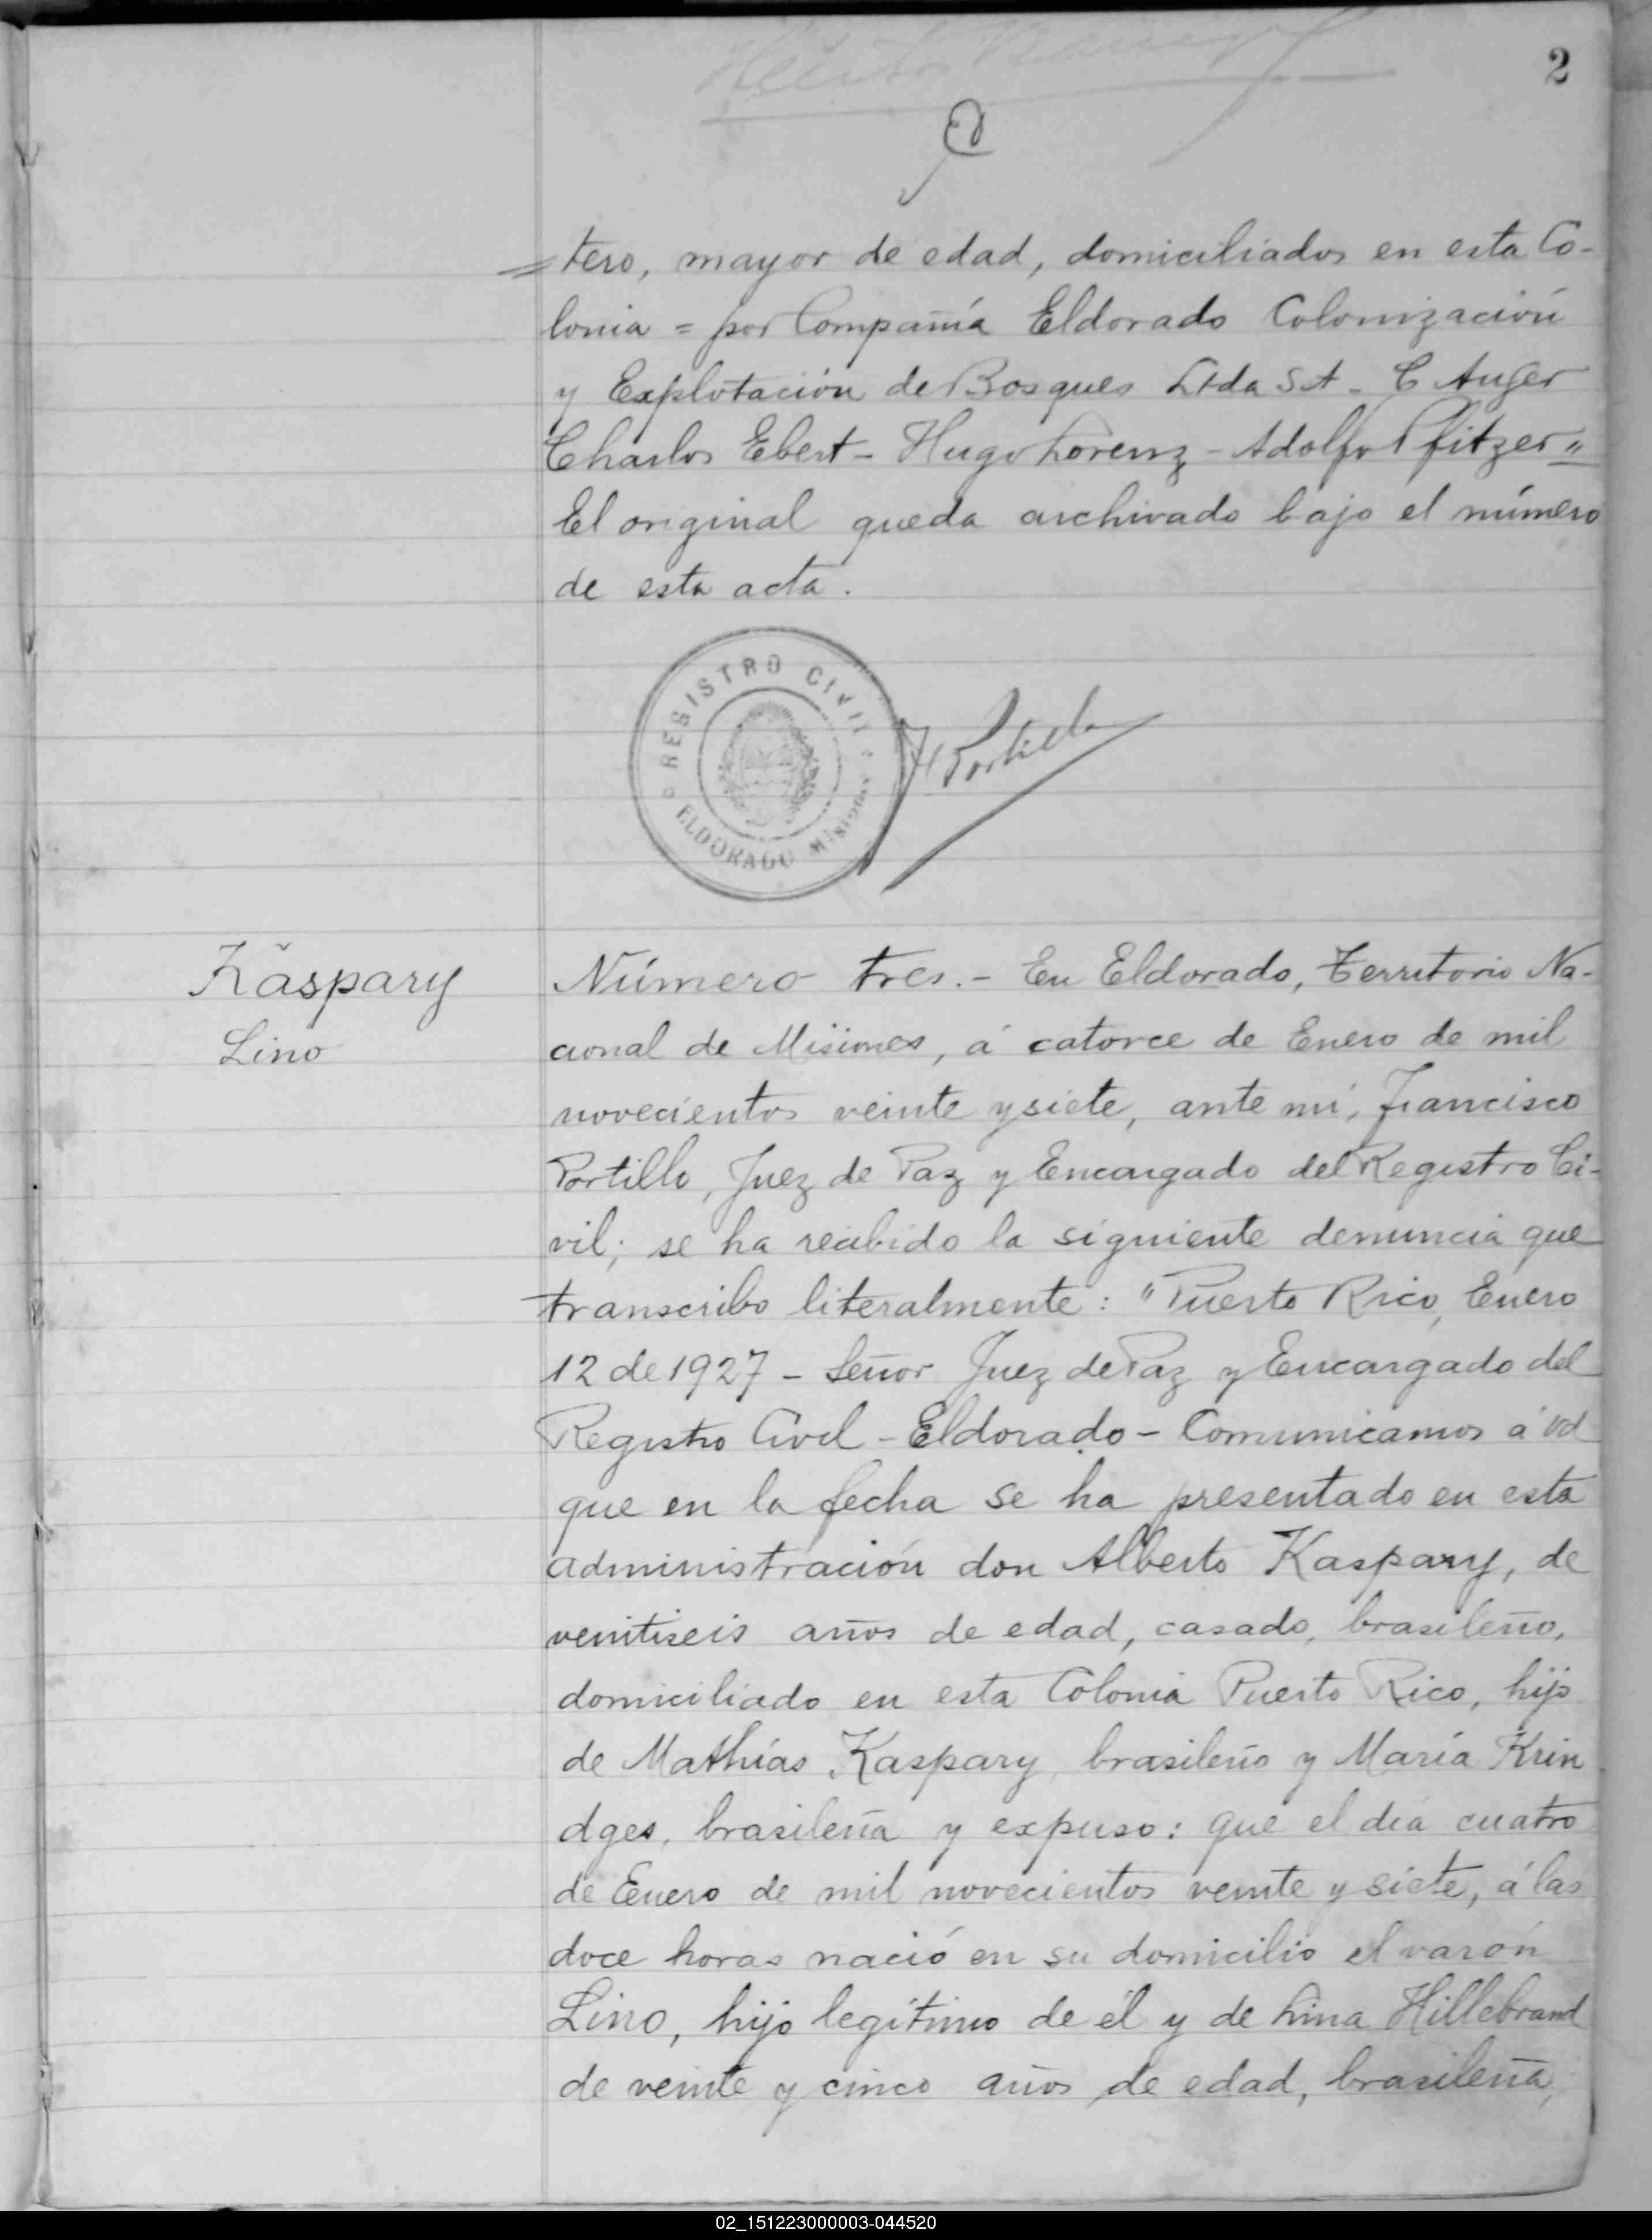 2
=tero, mayor de edad, domiciliados en esta Co-
lonia = por Compañía Eldorado Colonización
y Explotación de Bosques Ltda S.A - C Auger
Charlos Ebert - Hugo Lorenz - Adolfo Pfitzer"
El original queda archivado bajo el número
de esta acta.
REGISTRO CIVIL
ELDORADO Misiones
F Portillo
Käspary
Lino
Número tres.- En Eldorado, Territorio Na-
cional de Misiones, á catorce de Enero de mil
novecientos veinte y siete, ante mi, Francisco
Portillo, Juez de Paz y Encargado del Registro Ci-
vil; se ha recibido la siguiente denuncia que
transcribo literalmente: "Puerto Rico, Enero
12 de 1927 - Señor Juez de Paz y Encargado del
Registro Civil - Eldorado - Comunicamos á Ud
que en la fecha se ha presentado en esta
administración don Alberto Kaspary, de
venitiseis años de edad, casado, brasileño,
domiciliado en esta Colonia Puerto Rico, hijo
de Mathías Kaspary, brasileño y María Krin
dges, brasileña y expuso: que el día cuatro
de Enero de mil novecientos veinte y siete, á las
doce horas nació en su domicilio el varón
Lino, hijo legítimo de él y de Lina Hillebrand
de veinte y cinco años de edad, brasileña,
02_151223000003-044520